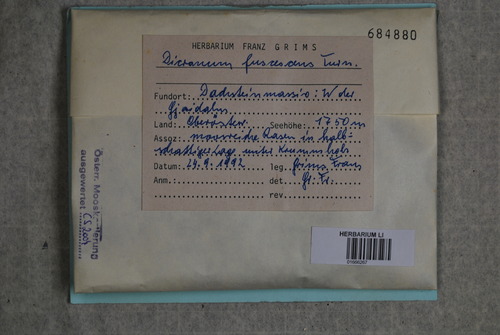 684880
HERBARIUM FRANZ GRIMS
Dicranum fuscescens Turn.
Fundort: Dachsteinmassiv: W der
Gjaidalm
Land: Oberösterr. Seehöhe: 1750 m
Assoz: moosreiche Rasen in halb-
schattiger Lage unter Krummholz
Datum: 29.9.1992 leg. Grims Franz
Anm.: det. Gr. Fr.
rev.
Österr. Mooskartierung
ausgewertet
HERBARIUM LI